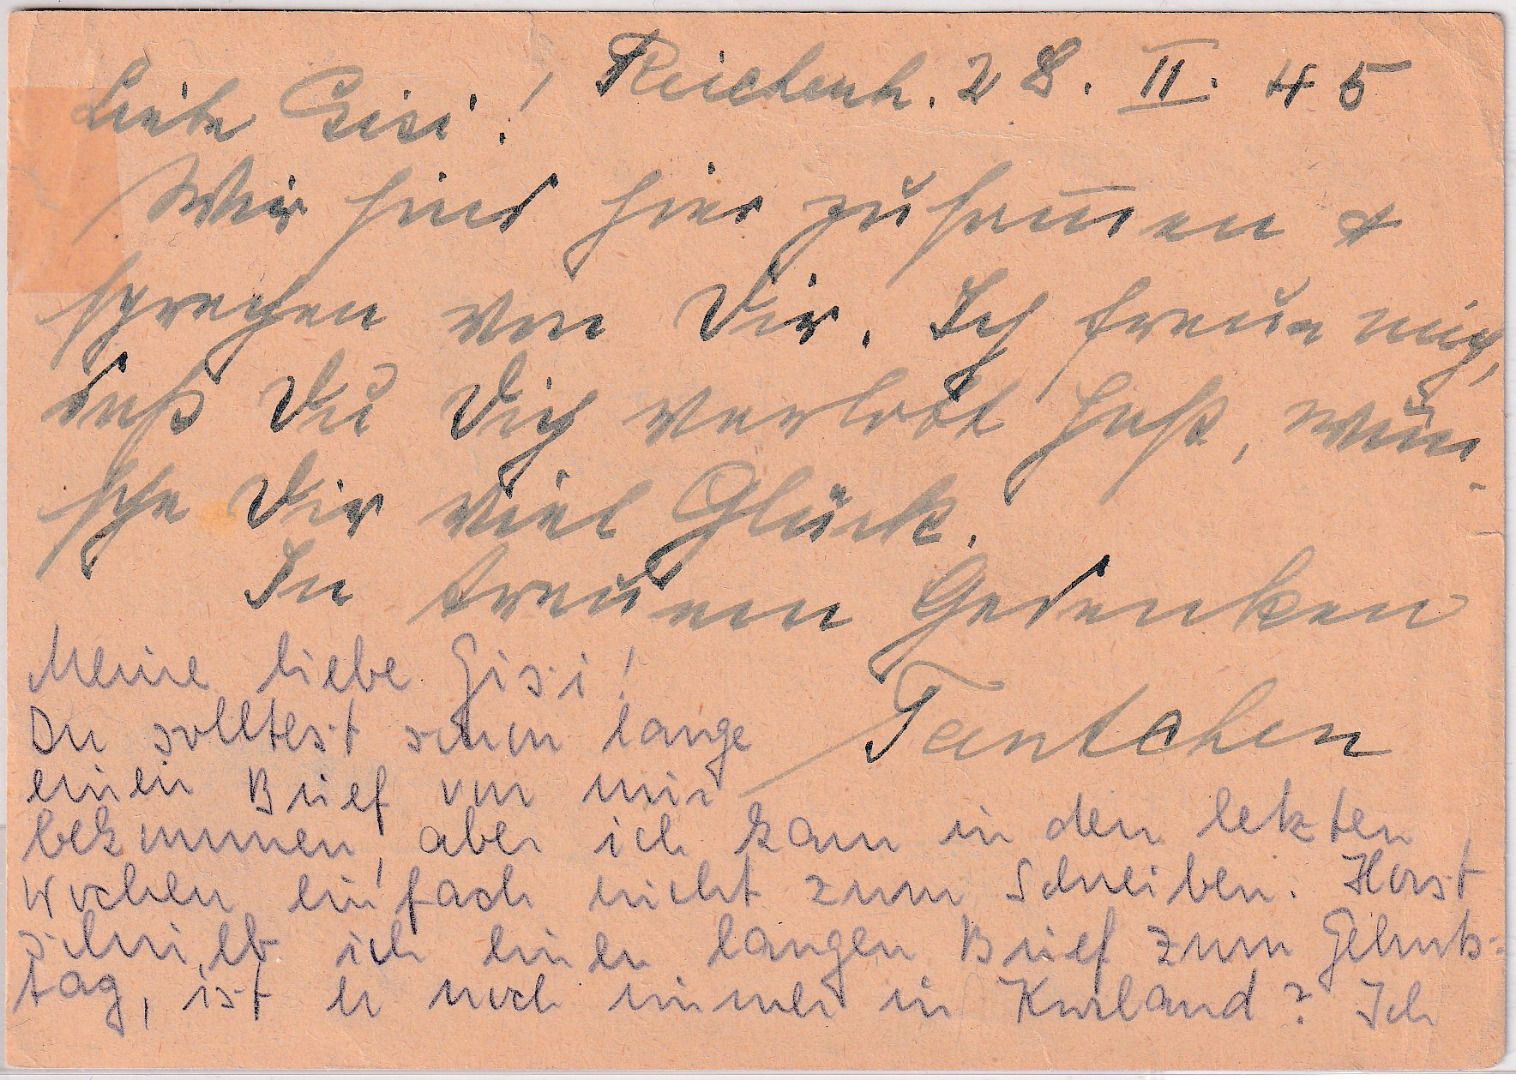 Liebe Gisi! Reichenb. 28. II. 45
Wir sind hier zusam̅en &
sprechen von Dir. Ich freue mich,
daß Du Dich verlobt hast, wün-
sche Dir viel Glück.
In treuem Gedenken
Tantchen
Meine liebe Gisi!
Du solltest schon lange
einen Brief von mir
bekommen, aber ich kam in den letzten
Wochen einfach nicht zum Schreiben. Horst
schrieb ich einen langen Brief zum Geburts-
tag, ist er noch immer in Kurland? Ich